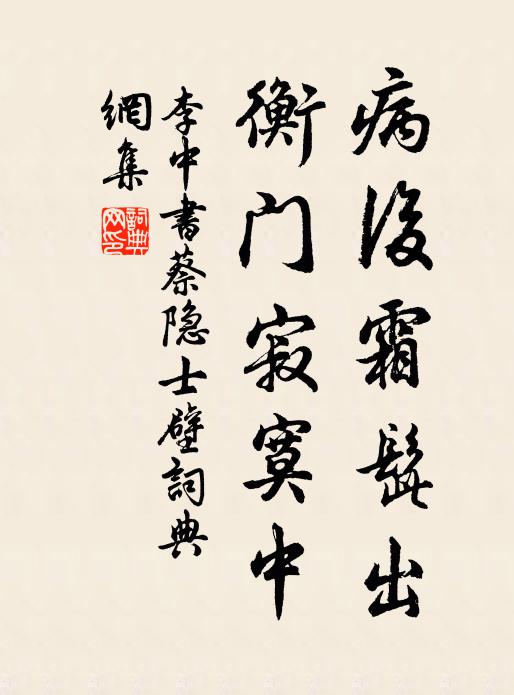 病後霜髭出
衡門寂寞中
李中書蔡隐士壁詞典
網集
詞典
网印